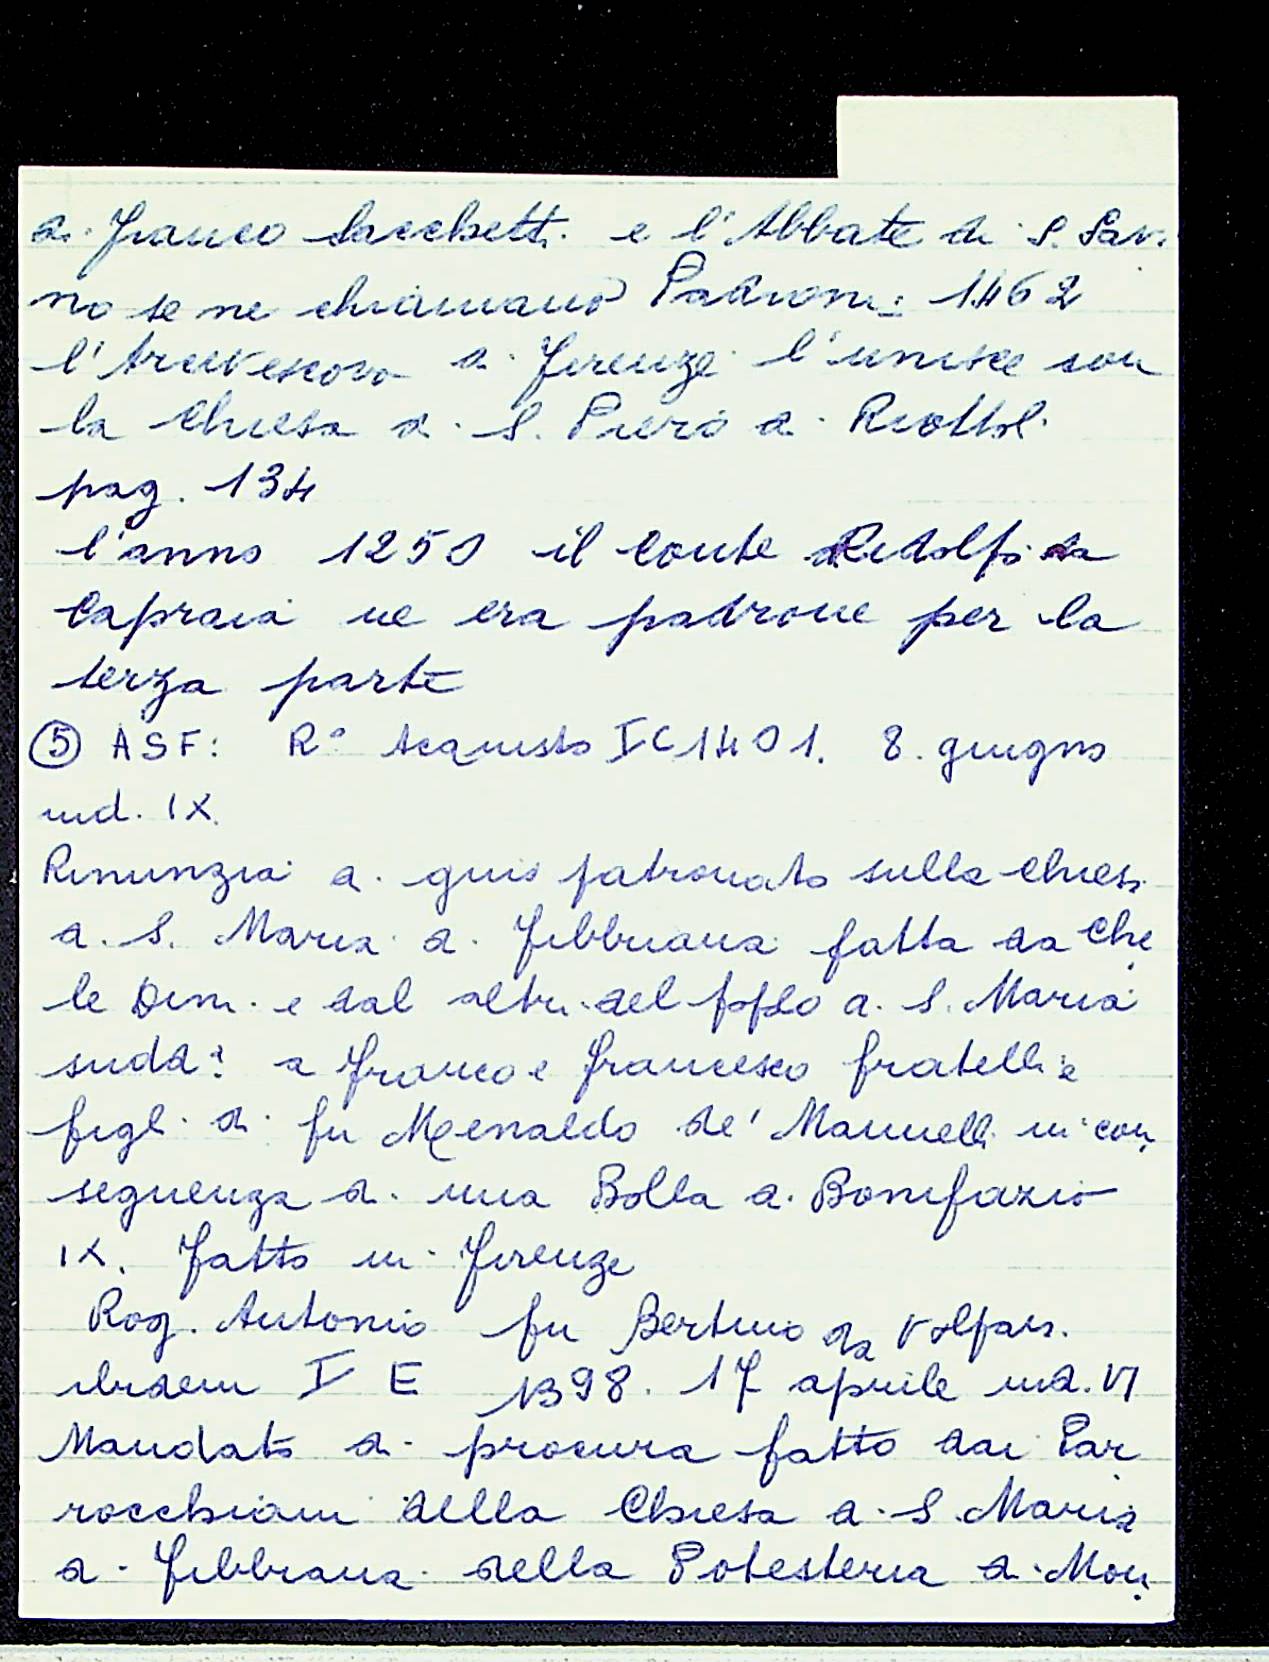 di Franco Sacchetti e l'Abbate di S. Savi
no se ne chiamano Padroni: 1462
l'Arcivescovo di Firenze l'unisce con
la Chiesa di S. Piero a Riottol.
pag. 134
l'anno 1250 il Conte Ridolfo da
Capraia ne era padrone per la
terza parte
⑤ ASF: R° Acquisto IC 1401. 8. giugno
ind. IX.
Rinunzia di gius patronato sulla chiesa
di S. Maria a Fibbiana fatta da Che
le Dini e dal altri del popolo di S. Maria
sudd.ª a Franco e Francesco fratelli e
figli di fu Menaldo de' Mannelli in con
seguenza di una Bolla di Bonifazio
IX. Fatto in Firenze
Rog. Antonio fu Bertino da
ibidem I E 1398. 17 aprile ind. VI
Mandato di procura fatto dai Par
rocchiani della Chiesa di S. Maria
a Fibbiana della Potesteria di Mon